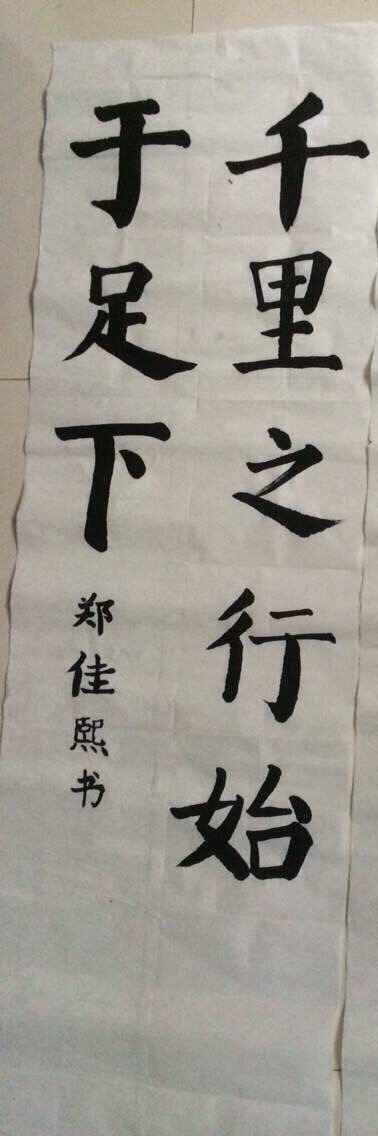 千里之行始
于足下
郑佳熙书